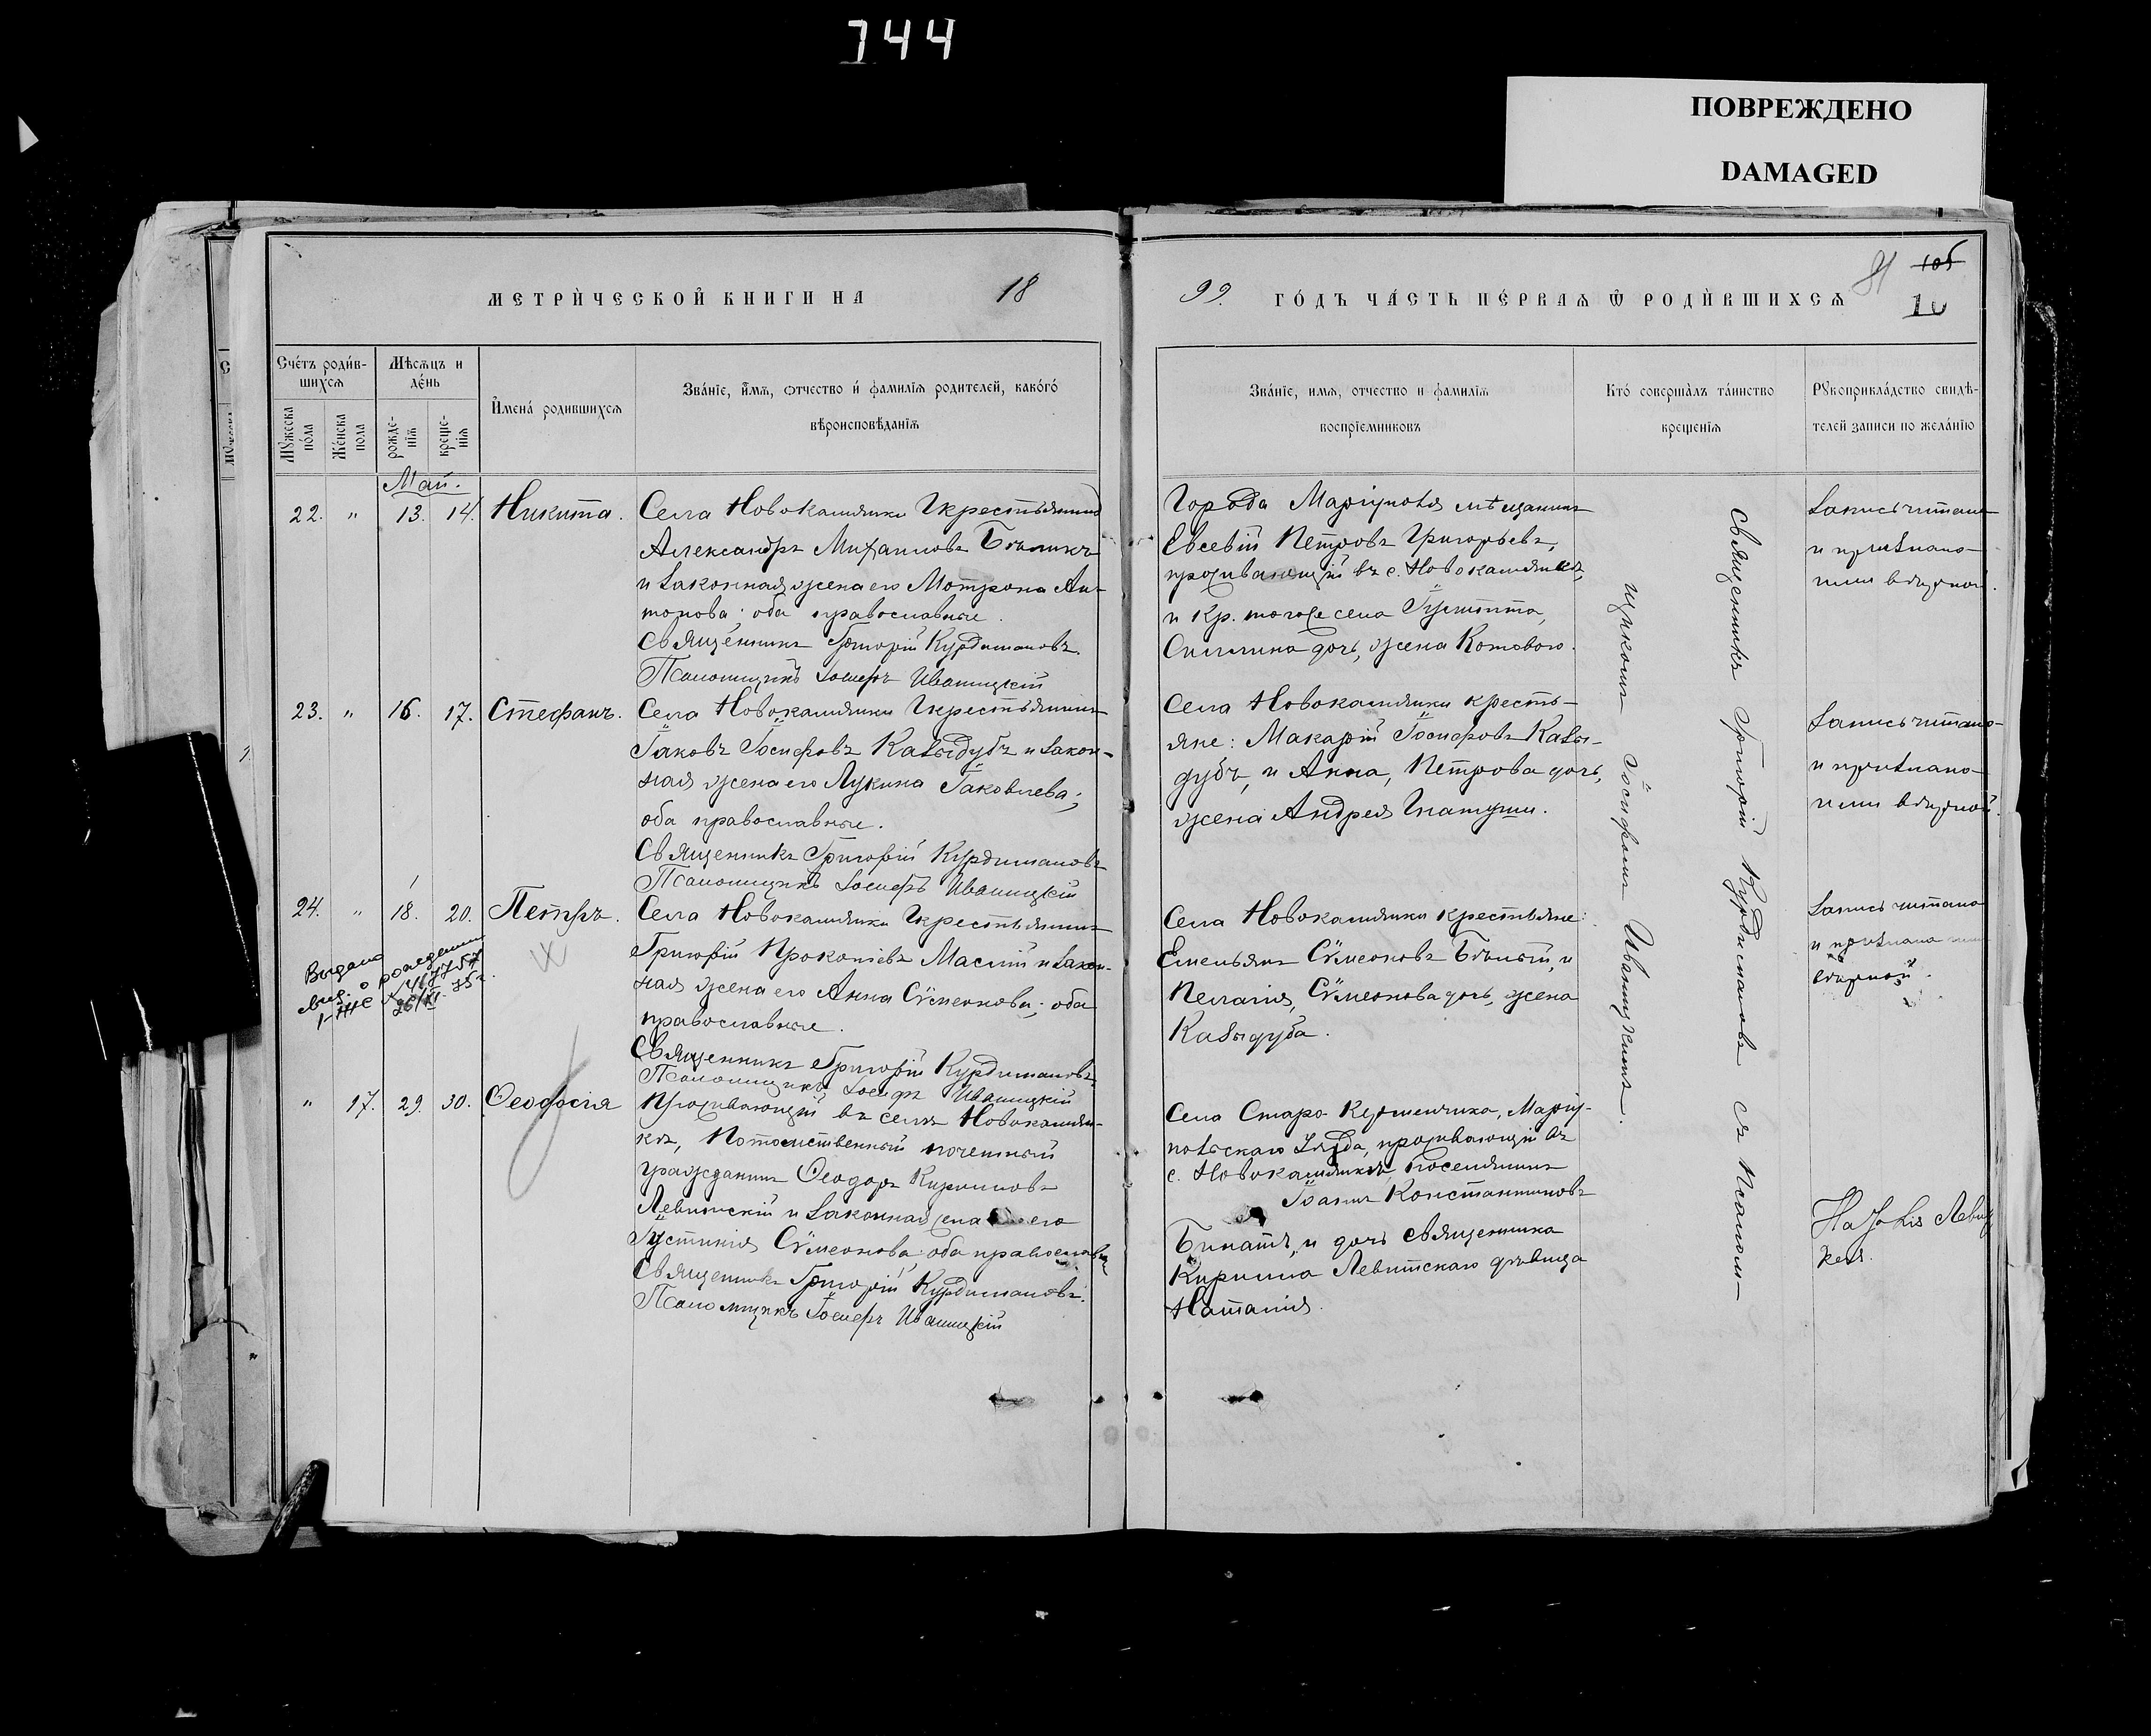 744
ПОВРЕЖДЕНО
DAMAGED
МЕТРИ́ЧЕСКОЙ КНИГИ НА 18
99. ГО́ДЪ ЧА́СТЬ ПЕ́РВАѦ Ѿ РОДИ́ВШИХСѦ
81
105
10
Сче́тъ роди́в-
шихсѧ
Мѣсѧцъ и
де́нь
Мꙋ́жеска
по́ла
Же́нска
пола
рожде-
нїѧ
креще-
нїѧ
И҆мена́ родившихсѧ
Зва́нїе, и҆́мѧ, ѻтчество и҆ фамилїѧ родителей, како́гѡ
вѣроисповѣданїѧ
Зва́нїе, имѧ, отчество и фамилїѧ
воспрїемниковъ
Кто́ соверша́лъ та́инство
крещенїѧ
Рꙋкоприкла́дство свидѣ-
телей записи по жела́нїю
Май.
22. " 13. 14. Никита.
Села Новокаменки крестьянинъ
Александръ Михаиловъ Бѣликъ
и законная жена его Мотрона Ан-
тонова; оба православные.
Священникъ Григорій Курдимановъ.
Псаломщикъ Іосифъ Иваницкій
Города Маріуполя мѣщанинъ
Евсевій Петровъ Григорьевъ,
проживающій въ с. Новокаменкѣ,
и кр. того же села
дочь, жена Котового.
Запись читана
и признана
ими вѣрной.
23. " 16. 17. Стефанъ.
Села Новокаменки крестьянинъ
Іаковъ Іосифовъ Казыдубъ и закон-
ная жена его Лукина Іаковлева;
оба православные.
Священникъ Григорій Курдимановъ
Псаломщикъ Іосифъ Иваницкій
Села Новокаменки кресть-
яне: Макарій Іосифовъ Казы-
дубъ, и Анна, Петрова дочь,
жена Андрея Гнатуши.
Запись читана
и признана
ими вѣрной.
24. " 18. 20. Петръ.
Выдано
свид. о рождении
26/XI 75г.
Села Новокаменки крестьянинъ
Григорій Прокопіевъ Маслій и закон-
ная жена его Анна Сѵмеонова; оба
православные.
Священникъ Григорій Курдимановъ
Псаломщикъ Іосифъ Иваницкій
Села Новокаменки крестьяне:
Емельянъ Сѵмеоновъ Бѣлый, и
Пелагія, Сѵмеонова дочь, жена
Казыдуба.
Запись читана
и признана ими
вѣрной.
" 17. 29. 30. Ѳеодосія
Проживающій въ селѣ Новокамен-
кѣ, Потомственный почетный
гражданинъ Ѳеодоръ Кирилловъ
Левитскій и законная жена его
Іустинія Сѵмеонова; оба православные
Священникъ Григорій Курдимановъ.
Псаломщикъ Іосифъ Иваницкій
Села Старо-Керменчика, Маріу-
польскаго Уѣзда, проживающій въ
с. Новокаменкѣ, поселянинъ
Іоаннъ Константиновъ
и дочь священника
Кирилла Левитскаго дѣвица
Наталія.
Священникъ Григорій Курдимановъ съ псалом-
щикомъ Іосифомъ Иваницкимъ.